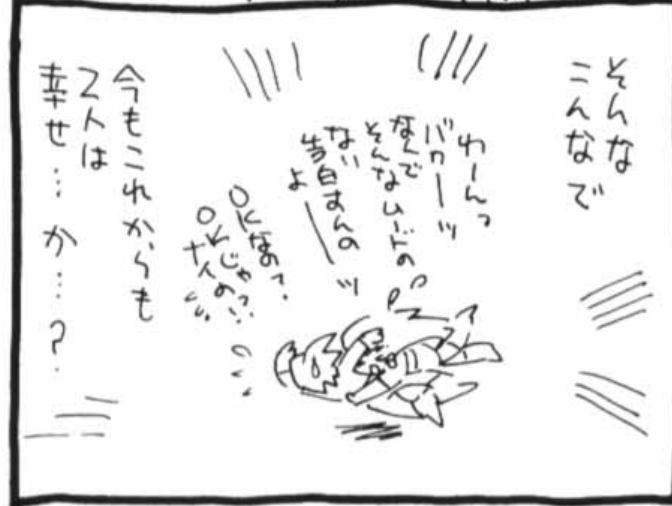 そんな
こんなで
わーんっ
バカーッ
なんで
そんなムードの
ない
告白すんのーッ
よ
OKなの?
OKじゃ
今もこれからも
2人は
幸せ…か…?